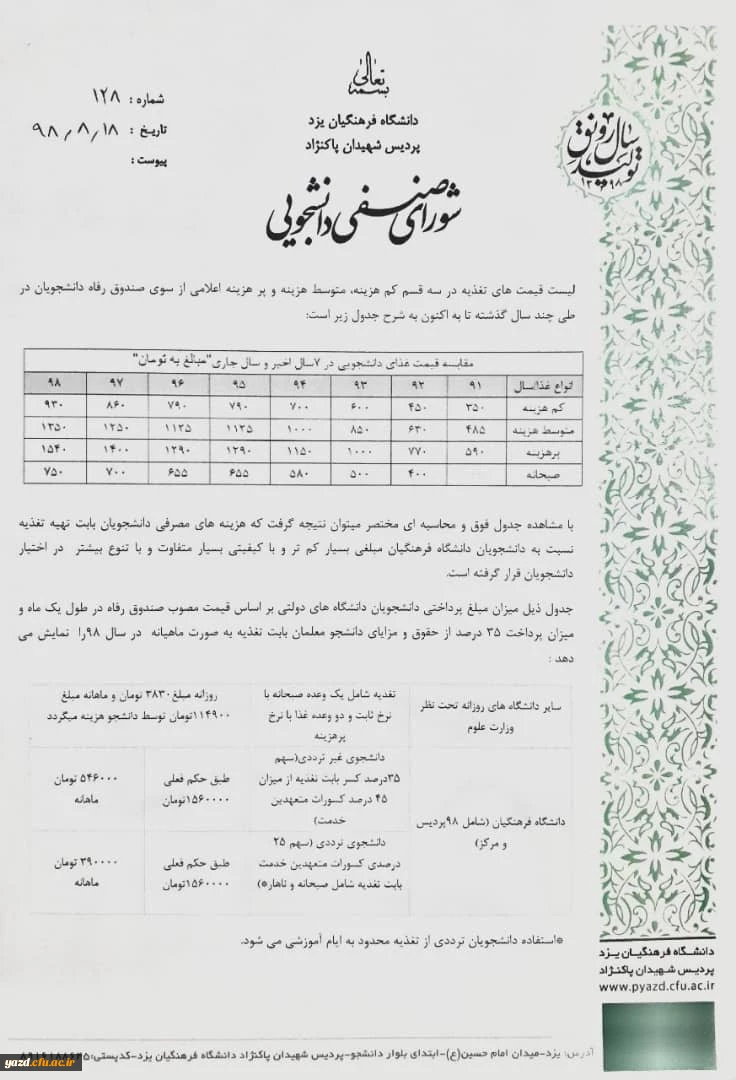 بسمه تعالی
دانشگاه فرهنگیان یزد
پردیس شهیدان پاکنژاد
شورای صنفی دانشجویی
شماره : ۱۲۸
تاریخ : ۹۸/۸/۱۸
پیوست :
سال رونق تولید
۱۳۹۸
لیست قیمت های تغذیه در سه قسم کم هزینه، متوسط هزینه و پر هزینه اعلامی از سوی صندوق رفاه دانشجویان در
طی چند سال گذشته تا به اکنون به شرح جدول زیر است:
مقایسه قیمت غذای دانشجویی در ۷سال اخیر و سال جاری"مبالغ به تومان"
انواع غذا/سال ۹۱ ۹۲ ۹۳ ۹۴ ۹۵ ۹۶ ۹۷ ۹۸
کم هزینه ۳۵۰ ۴۵۰ ۶۰۰ ۷۰۰ ۷۹۰ ۷۹۰ ۸۶۰ ۹۳۰
متوسط هزینه ۴۸۵ ۶۳۰ ۸۵۰ ۱۰۰۰ ۱۱۲۵ ۱۱۲۵ ۱۲۵۰ ۱۳۵۰
پرهزینه ۵۹۰ ۷۷۰ ۱۰۰۰ ۱۱۵۰ ۱۲۹۰ ۱۲۹۰ ۱۴۰۰ ۱۵۴۰
صبحانه ۴۰۰ ۵۰۰ ۵۸۰ ۶۵۵ ۶۵۵ ۷۰۰ ۷۵۰
با مشاهده جدول فوق و محاسبه ای مختصر میتوان نتیجه گرفت که هزینه های مصرفی دانشجویان بابت تهیه تغذیه
نسبت به دانشجویان دانشگاه فرهنگیان مبلغی بسیار کم تر و با کیفیتی بسیار متفاوت و با تنوع بیشتر در اختیار
دانشجویان قرار گرفته است.
جدول ذیل میزان مبلغ پرداختی دانشجویان دانشگاه های دولتی بر اساس قیمت مصوب صندوق رفاه در طول یک ماه و
میزان پرداخت ۳۵ درصد از حقوق و مزایای دانشجو معلمان بابت تغذیه به صورت ماهیانه در سال ۹۸را نمایش می
دهد :
سایر دانشگاه های روزانه تحت نظر
وزارت علوم
تغذیه شامل یک وعده صبحانه با
نرخ ثابت و دو وعده غذا با نرخ
پرهزینه
روزانه مبلغ۳۸۳۰ تومان و ماهانه مبلغ
۱۱۴۹۰۰تومان توسط دانشجو هزینه میگردد
دانشگاه فرهنگیان (شامل ۹۸پردیس
و مرکز)
دانشجوی غیر ترددی(سهم
۳۵درصد کسر بابت تغذیه از میزان
۴۵ درصد کسورات متعهدین
خدمت)
طبق حکم فعلی
۱۵۶۰۰۰۰تومان
۵۴۶۰۰۰ تومان
ماهانه
دانشجوی ترددی (سهم ۲۵
درصدی کسورات متعهدین خدمت
بابت تغذیه شامل صبحانه و ناهار*)
طبق حکم فعلی
۱۵۶۰۰۰۰تومان
۳۹۰۰۰۰ تومان
ماهانه
*استفاده دانشجویان ترددی از تغذیه محدود به ایام آموزشی می شود.
دانشگاه فرهنگیان یزد
پردیس شهیدان پاکنژاد
www.pyazd.cfu.ac.ir
آدرس: یزد-میدان امام حسین(ع)-ابتدای بلوار دانشجو-پردیس شهیدان پاکنژاد دانشگاه فرهنگیان یزد-کدپستی:
yazd.cfu.ac.ir